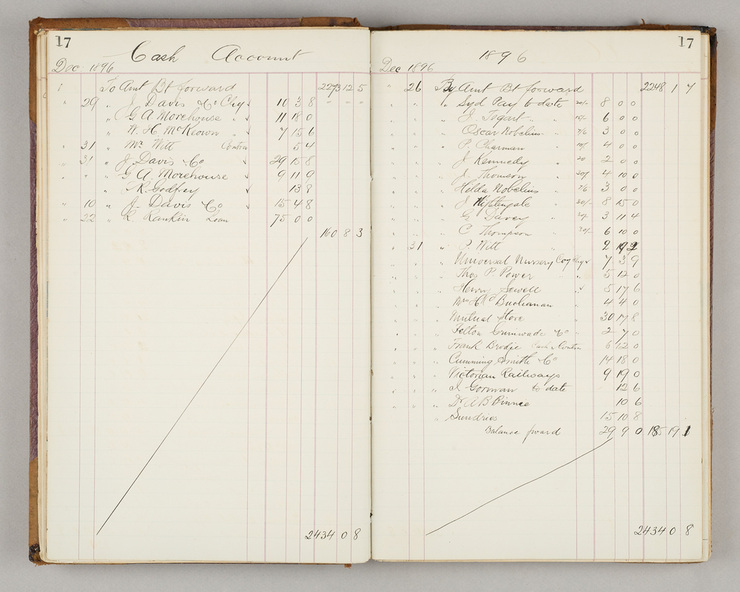 17
Cash Account
Dec 1896
To Amt Bt forward 2273 12 5
" 29 " J. Davis & Co 10 3 8
" G A Morehouse 11 18 0
" W. H. McKeown 7 15 6
" 31 " Mr Witt Contra 5 4
" 31 " J Davis & Co 29 15 8
" G A Morehouse 9 11 9
" Godfrey 13 8
" 10 " J. Davis & Co 15 4 8
" 22 R Rankin Loan 75 0 0
160 8 3
2434 0 8
17
1896
Dec 1896
" 26 By Amt Bt forward 2248 1 7
" Syd Ray to date 8 0 0
" Oscar Nobelius 3 0 0
" P. Chapman 4 0 0
" J Kennedy 2 0 0
" J. Thomson 4 10 0
" Hilda Nobelius 3 0 0
" J Nightingale 8 15 0
" G Harvey 3 11 4
" C Thompson 6 10 0
" 31 " P. Witt
" Universal Nursery Coy 7 3 9
" Thos P. Power 5 12 0
" Henry Sewell 5 17 6
" Wm C Buchanan 4 4 0
" Mutual Store 30 17 8
" Felton Grimwade & Co 2 7 0
" Frank Brodie Cash Contra 6 12 0
" Cumming Smith & Co 14 18 0
" Victorian Railways 9 19 0
" J. Gorman to date 12 6
" Dr A B 10 6
" Sundries 15 10 8
Balance forward 29 9 0 185 19 1
2434 0 8